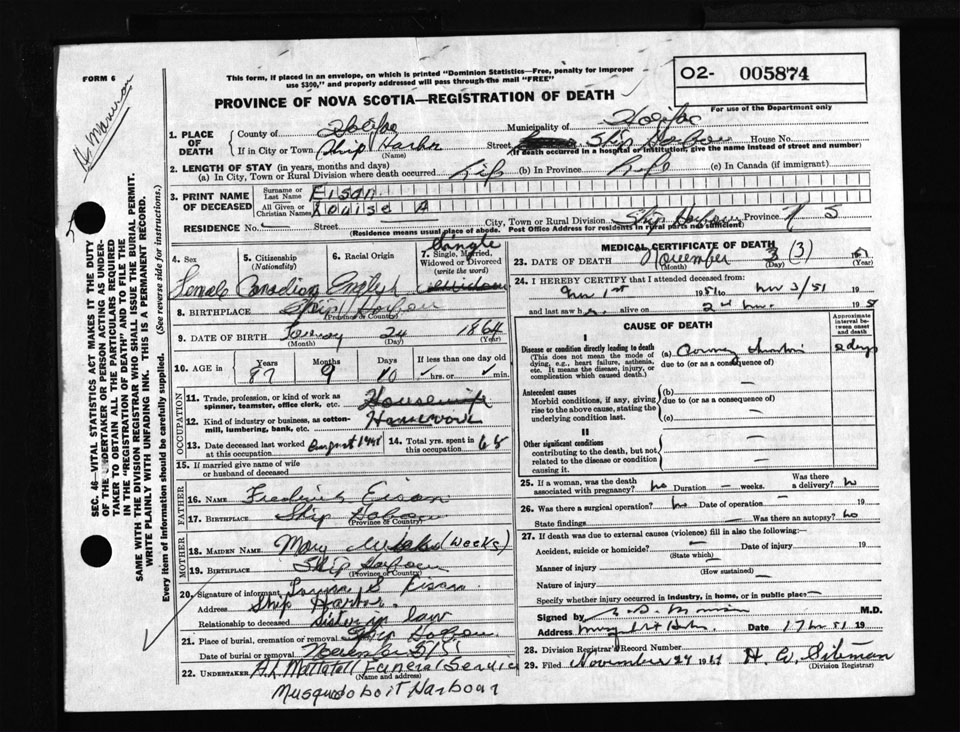 FORM 6
This form, if placed in an envelope, on which is printed "Dominion Statistics—Free, penalty for improper
use $300," and properly addressed will pass through the mail "FREE"
O2- 005874
PROVINCE OF NOVA SCOTIA—REGISTRATION OF DEATH
For use of the Department only
SEC. 46—VITAL STATISTICS ACT MAKES IT THE DUTY
OF THE UNDERTAKER OR PERSON ACTING AS UNDER-
TAKER TO OBTAIN ALL THE PARTICULARS REQUIRED
IN THE "REGISTRATION OF DEATH" AND TO FILE THE
SAME WITH THE DIVISION REGISTRAR WHO SHALL ISSUE THE BURIAL PERMIT.
WRITE PLAINLY WITH UNFADING INK. THIS IS A PERMANENT RECORD.
Every item of information should be carefully supplied. (See reverse side for instructions.)
1. PLACE OF DEATH County of Halifax Municipality of Halifax
If in City or Town Ship Harbor (Name) Street Ship Harbour House No.
(If death occurred in a hospital or institution, give the name instead of street and number)
2. LENGTH OF STAY (in years, months and days)
(a) In City, Town or Rural Division where death occurred Life (b) In Province Life (c) In Canada (if immigrant)
3. PRINT NAME OF DECEASED
Surname or Last Name Eisan
All Given or Christian Names Louise A
RESIDENCE No. Street City, Town or Rural Division Ship Harbour Province N S
(Residence means usual place of abode. Post Office Address for residents in rural parts not sufficient)
4. Sex Female
5. Citizenship (Nationality) Canadian
6. Racial Origin English
7. Single, Married, Widowed or Divorced (write the word) Single
8. BIRTHPLACE Ship Harbour (Province or Country)
9. DATE OF BIRTH (Month) 24 (Day) 1864
10. AGE in Years 87 Months 9 Days 10 If less than one day old hrs. or min.
OCCUPATION
11. Trade, profession, or kind of work as spinner, teamster, office clerk, etc. Housewife
12. Kind of industry or business, as cotton-mill, lumbering, bank, etc. Housework
13. Date deceased last worked at this occupation August 14. Total yrs. spent in this occupation 68
15. If married give name of wife or husband of deceased
FATHER
16. NAME Frederick Eisan
17. BIRTHPLACE Ship Harbour (Province or Country)
MOTHER
18. MAIDEN NAME Mary Weeks (Weeks)
19. BIRTHPLACE Ship Harbour (Province or Country)
20. Signature of informant S. Eisan
Address Ship Harbor.
Relationship to deceased Sister in law
21. Place of burial, cremation or removal Ship Harbour
Date of burial or removal November 5/51
22. UNDERTAKER A.L. Mattatall Funeral Service
(Name and address)
Musquodoboit Harbour
MEDICAL CERTIFICATE OF DEATH
23. DATE OF DEATH November (Month) 3 (3) (Day) 1951 (Year)
24. I HEREBY CERTIFY that I attended deceased from
Nov 1st 1951 to Nov 3/51 19
and last saw h alive on 2nd Nov. 195
CAUSE OF DEATH
Approximate interval between onset and death
I
Disease or condition directly leading to death
(This does not mean the mode of dying, e.g., heart failure, asthenia, etc. It means the disease, injury, or complication which caused death.)
(a) Coronary
due to (or as a consequence of)
2 days
Antecedent causes
Morbid conditions, if any, giving rise to the above cause, stating the underlying condition last.
(b) —
due to (or as a consequence of)
(c) —
II
Other significant conditions
contributing to the death, but not related to the disease or condition causing it.
25. If a woman, was the death associated with pregnancy? no Duration – weeks. Was there a delivery? no
26. Was there a surgical operation? no Date of operation – 19
State findings — Was there an autopsy? no
27. If death was due to external causes (violence) fill in also the following:—
Accident, suicide or homicide? — (State which) Date of injury 19
Manner of injury — (How sustained)
Nature of injury
Specify whether injury occurred in industry, in home, or in public place —
Signed by M.D.
Address Date 17 Nov 51 19
28. Division Registrar's Record Number
29. Filed November 27 1951 H. W. Siteman
(Division Registrar)